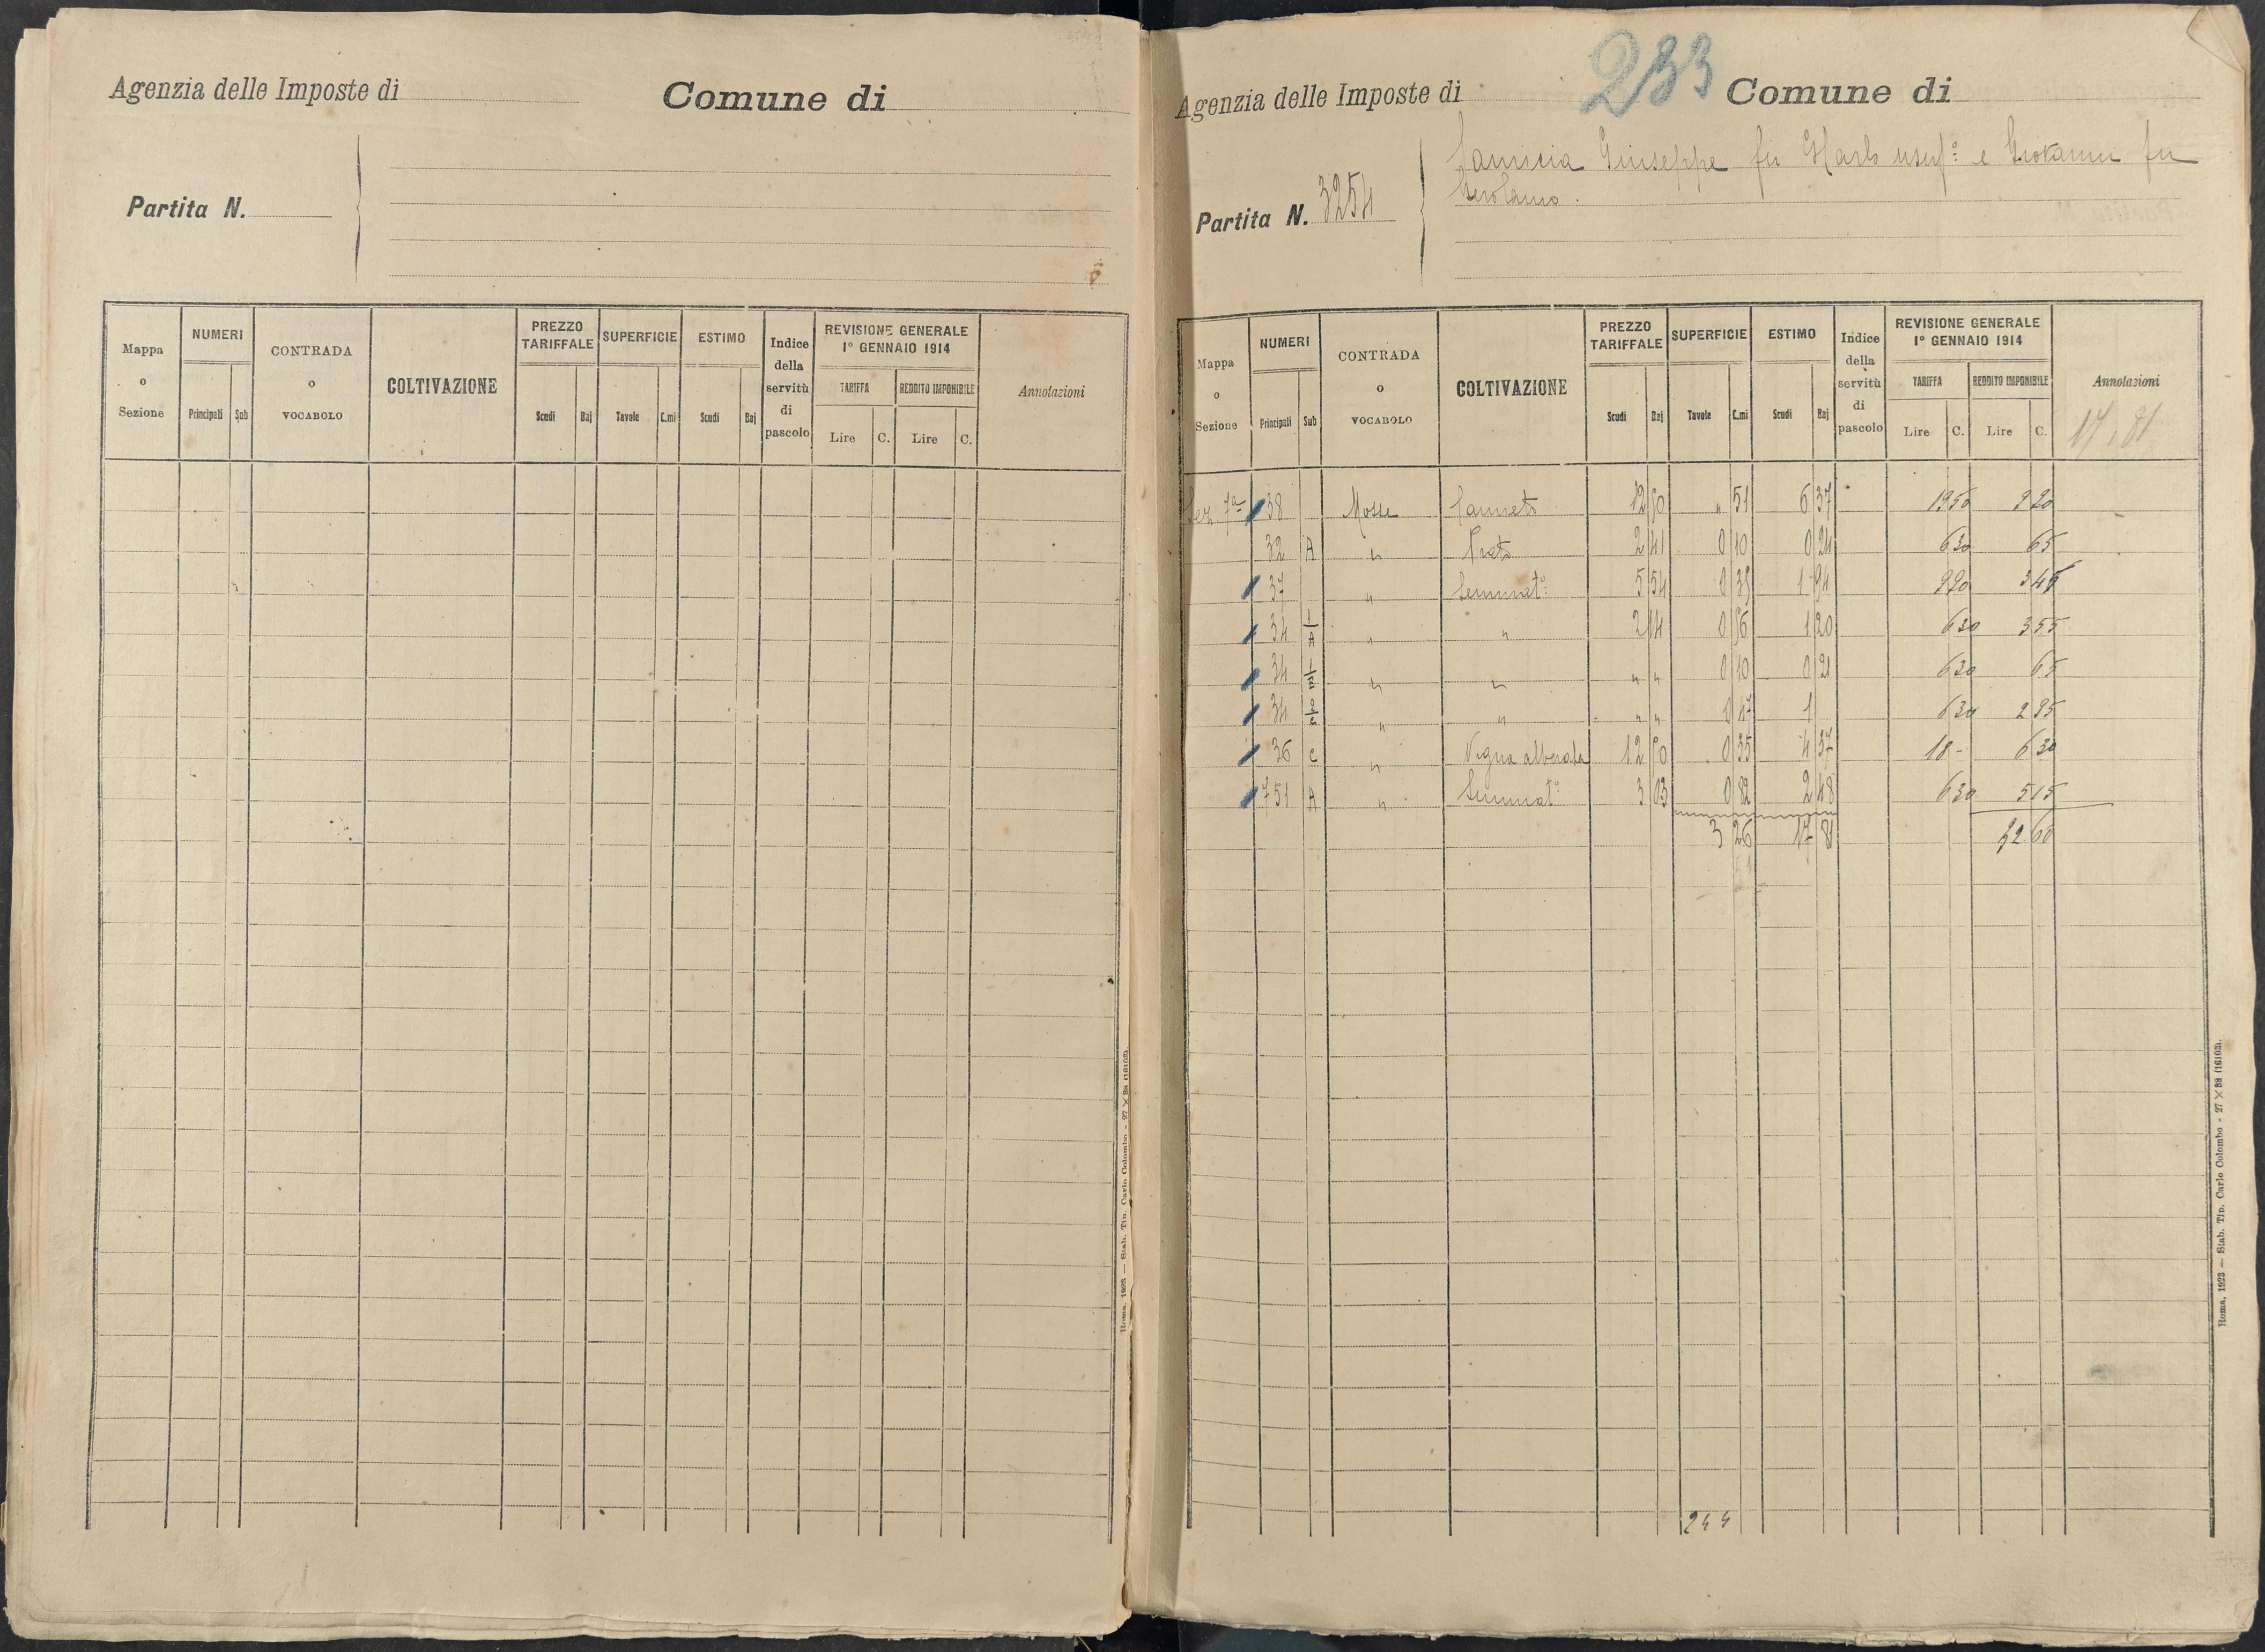 Agenzia delle Imposte di Comune di
Partita N.
Mappa o Sezione NUMERI Principali Sub CONTRADA o VOCABOLO COLTIVAZIONE PREZZO TARIFFALE Scudi Baj SUPERFICIE Tavole C.mi ESTIMO Scudi Baj Indice della servitù di pascolo REVISIONE GENERALE 1° GENNAIO 1914 TARIFFA Lire C. REDDITO IMPONIBILE Lire C. Annotazioni
Roma, 1923 — Stab. Tip. Carlo Colombo - 27 × 38 (16103).
233
Agenzia delle Imposte di Comune di
Giuseppe fu Carlo usuf.° e Giovanni fu
Gerolamo.
Partita N. 3254
Mappa o Sezione NUMERI Principali Sub CONTRADA o VOCABOLO COLTIVAZIONE PREZZO TARIFFALE Scudi Baj SUPERFICIE Tavole C.mi ESTIMO Scudi Baj Indice della servitù di pascolo REVISIONE GENERALE 1° GENNAIO 1914 TARIFFA Lire C. REDDITO IMPONIBILE Lire C. Annotazioni
17,81
Sez 7a 38 Mosse Canneto 12 50 " 51 6 37 19 50 9 20
32 A " Prato 2 41 0 10 0 24 6 30 65
37 " Seminat.° 5 54 0 35 1 94 9 90 3 45
34 1/A " " 2 14 0 56 1 20 6 30 3 55
34 " " " " 0 10 0 21 6 30 65
34 " " " " 0 47 1 6 30 2 95
36 C " Vigna alberata 12 50 0 35 4 37 18 - 6 30
751 A " Seminat.° 3 03 0 82 2 48 6 30 5 15
3 26 17 81 60
244
Roma, 1923 — Stab. Tip. Carlo Colombo - 27 × 38 (16103).